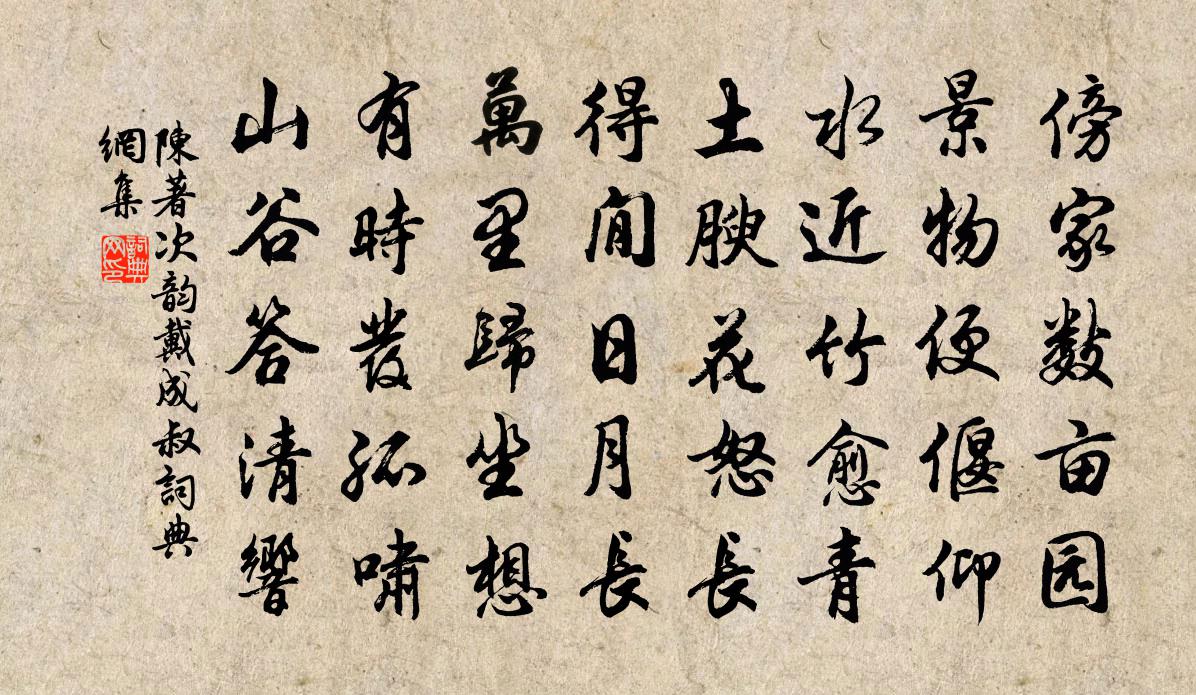 傍家数亩园
景物便偃仰
水近竹愈青
土腴花怒長
得閒日月長
萬里歸坐想
有時發孤嘯
山谷答清響
陳著次韵戴成叔詞典
網集
詞典网印